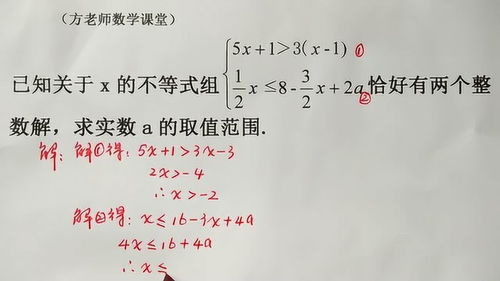 （方老师数学课堂）
5x+1>3(x-1) ①
已知关于 x 的不等式组 1/2 x ≤ 8 - 3/2 x + 2a ② 恰好有两个整
数解，求实数 a 的取值范围.
解：解①得：5x+1>3x-3
2x>-4
∴x>-2
解②得：x≤16-3x+4a
4x≤16+4a
∴x≤